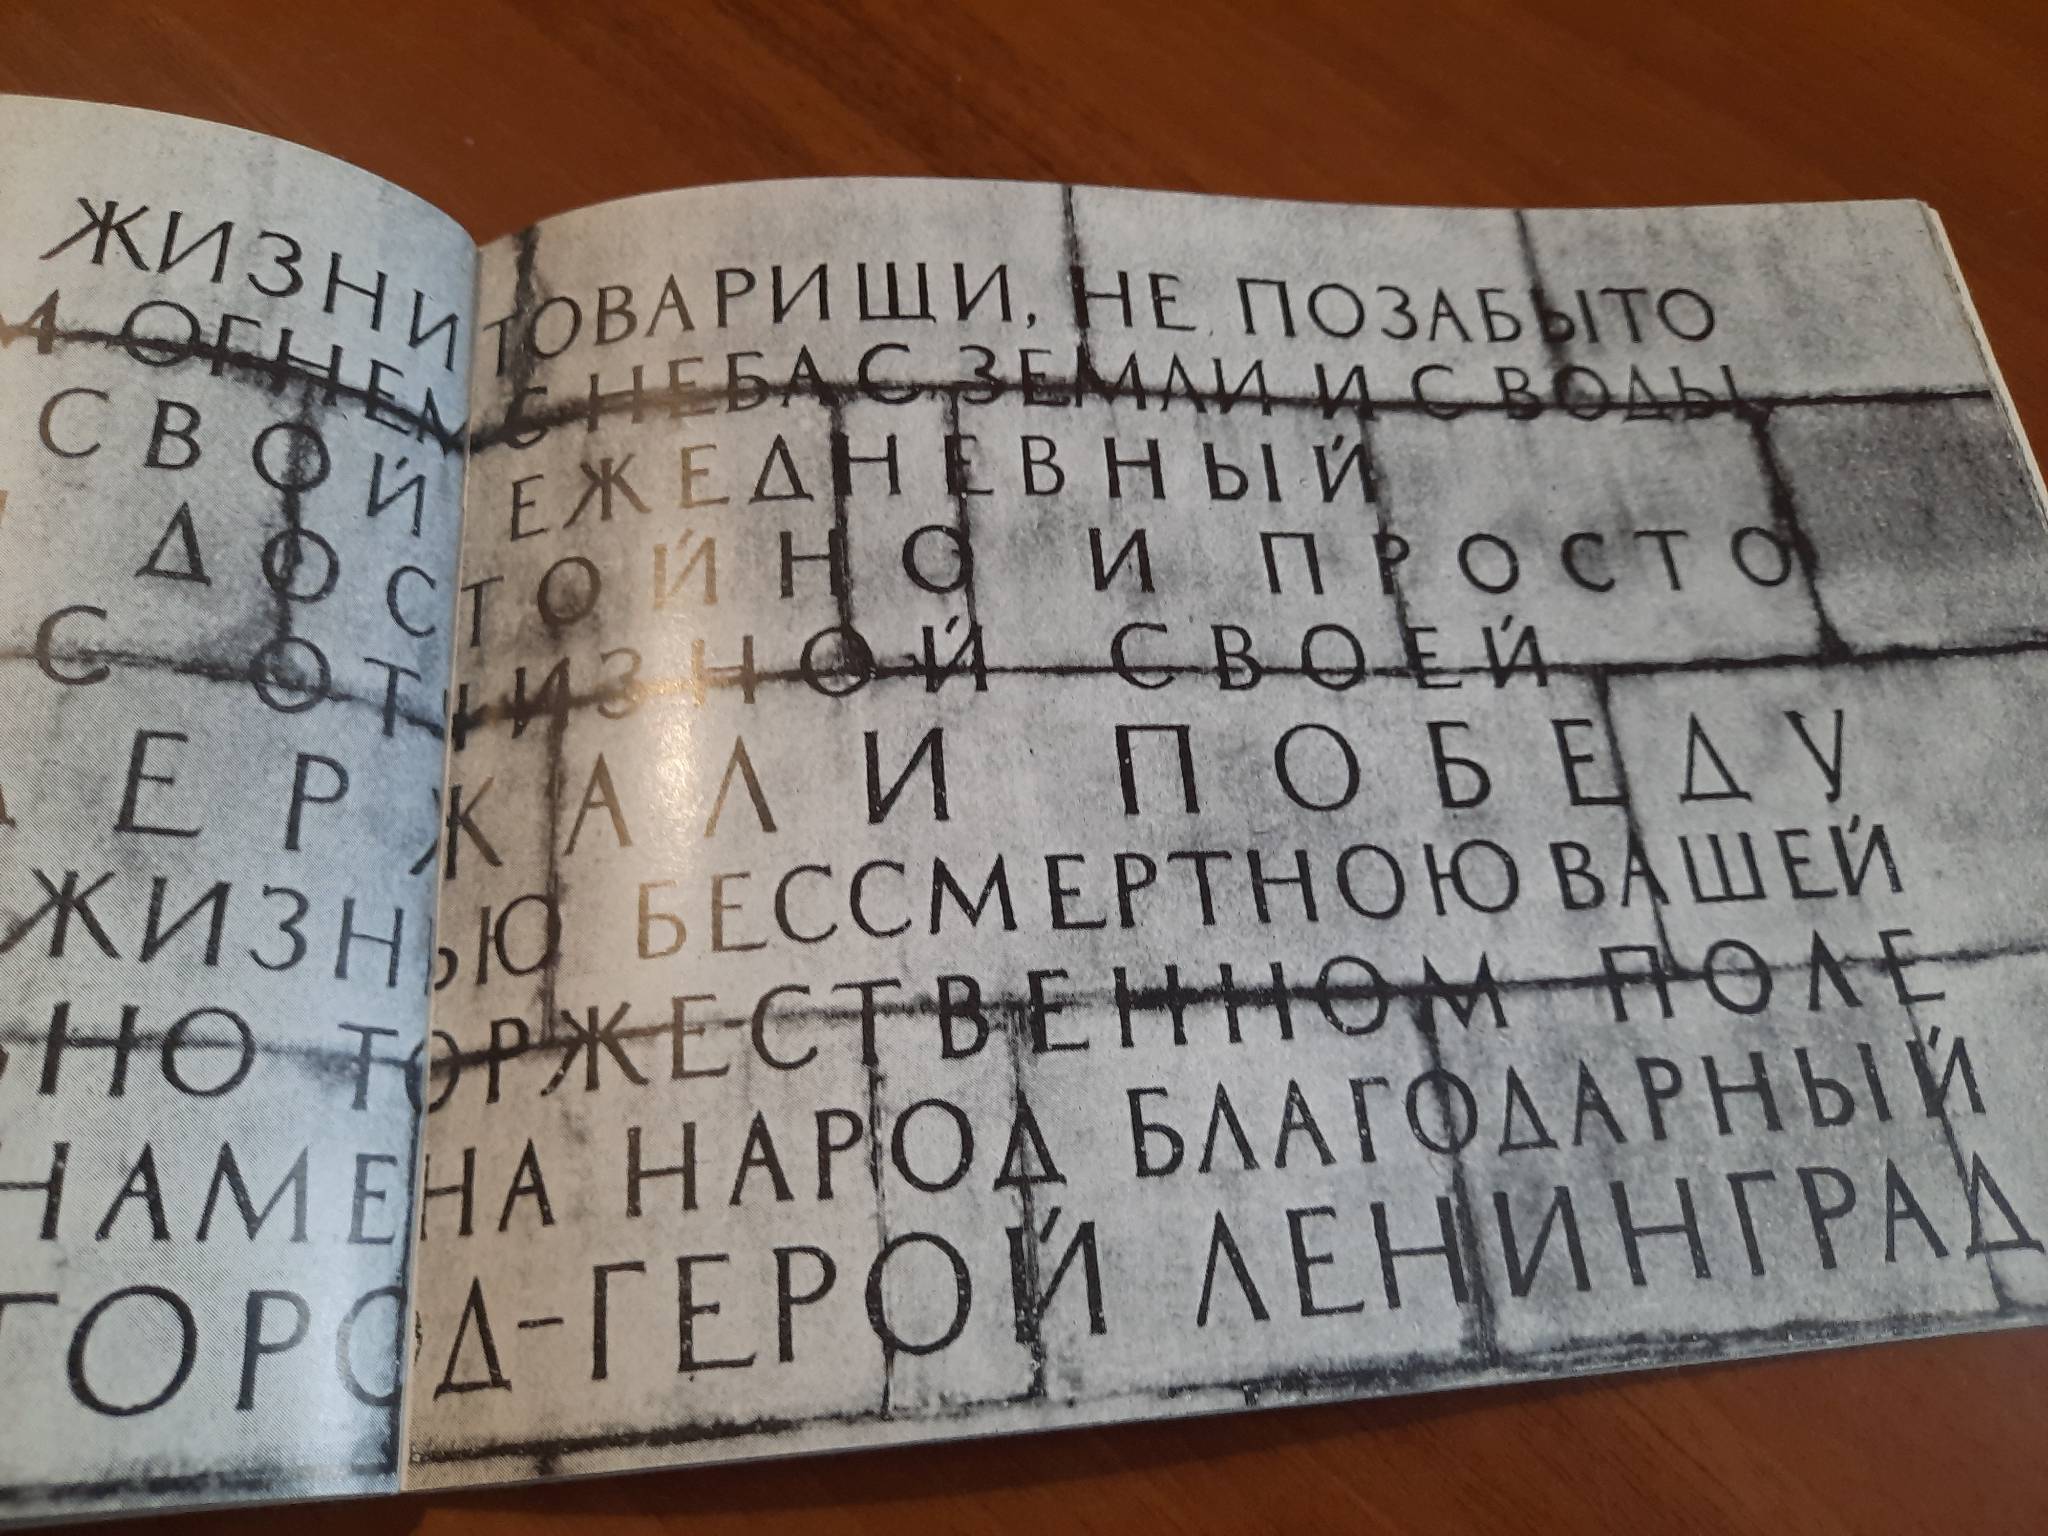 ЖИЗНИ ТОВАРИЩИ, НЕ ПОЗАБЫТО
М ОГНЕМ С НЕБА С ЗЕМЛИ И С ВОДЫ
СВОЙ ЕЖЕДНЕВНЫЙ
ДОСТОЙНО И ПРОСТО
С ОТЧИЗНОЙ СВОЕЙ
ЕРЖАЛИ ПОБЕДУ
ЖИЗНЬЮ БЕССМЕРТНОЮ ВАШЕЙ
ЬНО ТОРЖЕСТВЕННОМ ПОЛЕ
НАМЕНА НАРОД БЛАГОДАРНЫЙ
ГОРОД-ГЕРОЙ ЛЕНИНГРАД